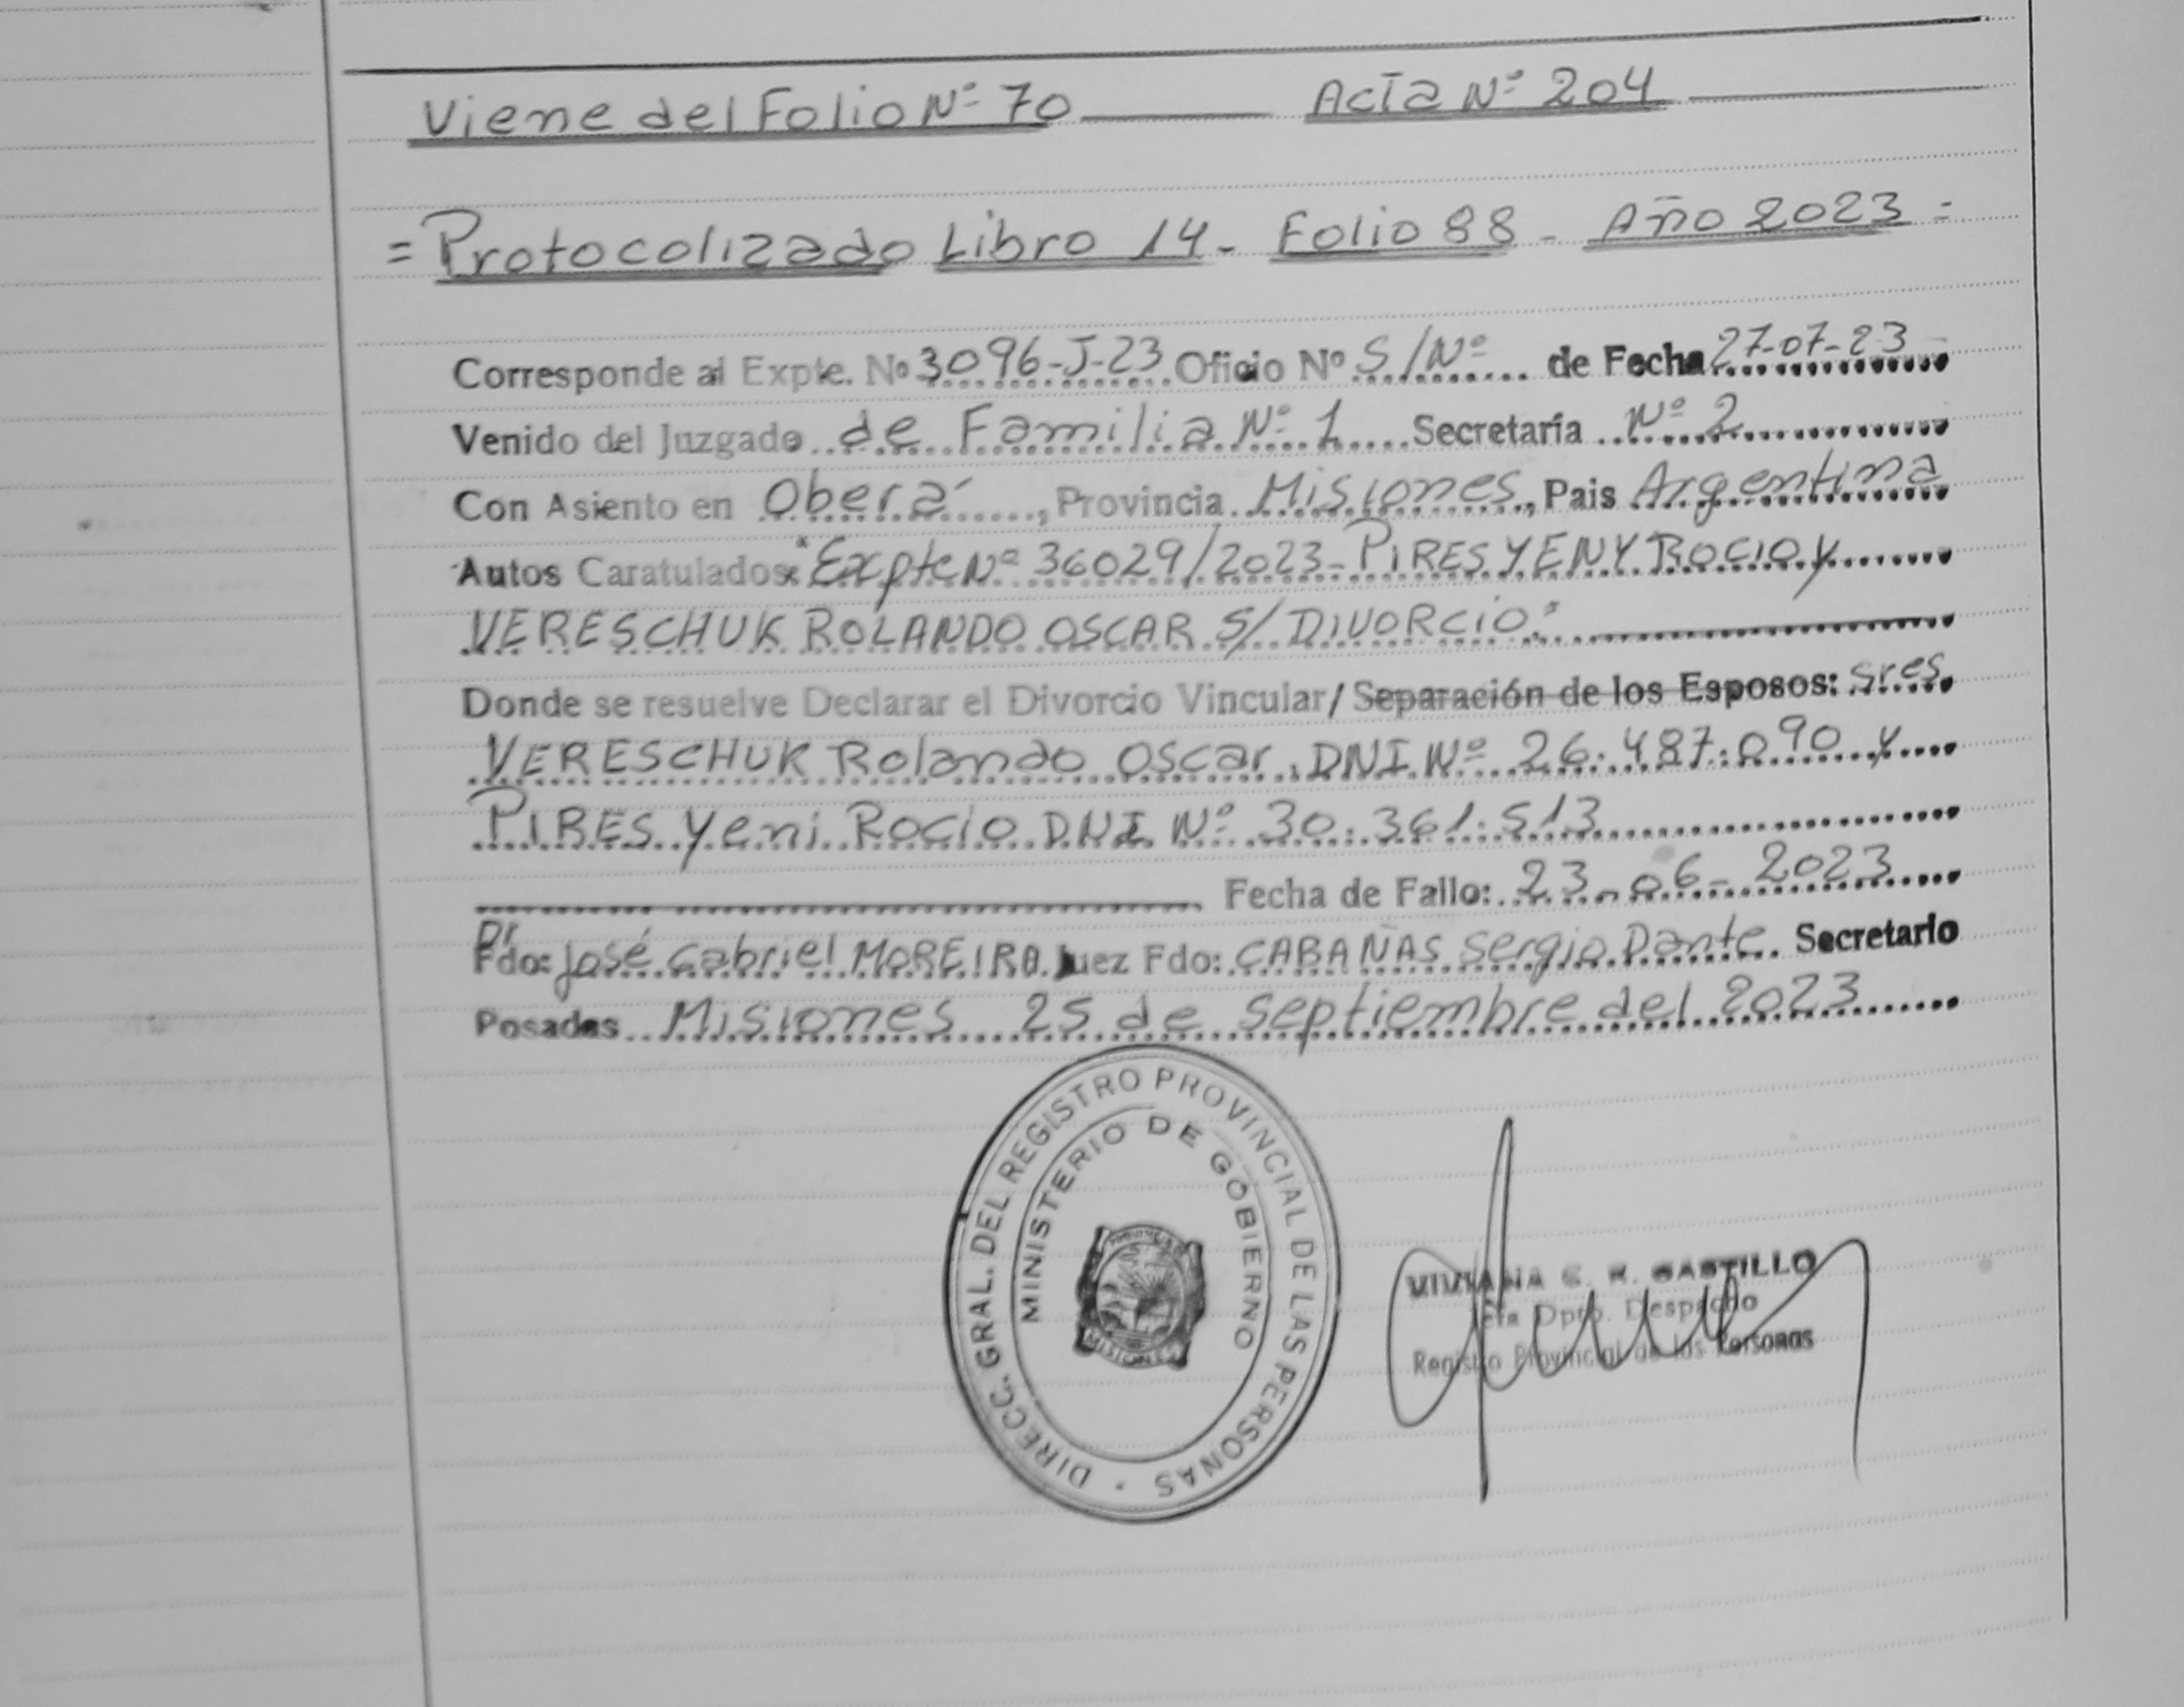 Viene del Folio Nº 70 Acta Nº 204
= Protocolizado Libro 14 - Folio 88 - Año 2023 =
Corresponde al Expte. Nº 3096-J-23 Oficio Nº S/Nº de Fecha 27-07-23
Venido del Juzgado de Familia Nº 1 Secretaría Nº 2
Con Asiento en Oberá, Provincia Misiones, Pais Argentina
Autos Caratulados: "Expte Nº 36029/2023 - PIRES YENY ROCIO y
VERESCHUK ROLANDO OSCAR S/ DIVORCIO."
Donde se resuelve Declarar el Divorcio Vincular / Separación de los Esposos: Sres.
VERESCHUK Rolando Oscar, DNI Nº 26.487.090 y
PIRES Yeni Rocio DNI Nº 30.361.513
Fecha de Fallo: 23-06-2023
Dr
Fdo: José Gabriel MOREIRA Juez Fdo: CABAÑAS Sergio Dante. Secretario
Posadas Misiones 25 de Septiembre del 2023
DIRECC. GRAL. DEL REGISTRO PROVINCIAL DE LAS PERSONAS
MINISTERIO DE GOBIERNO
PROVINCIA DE
MISIONES
VIVIANA C. CASTILLO
Dpto. Despacho
Registro Provincial de las Personas